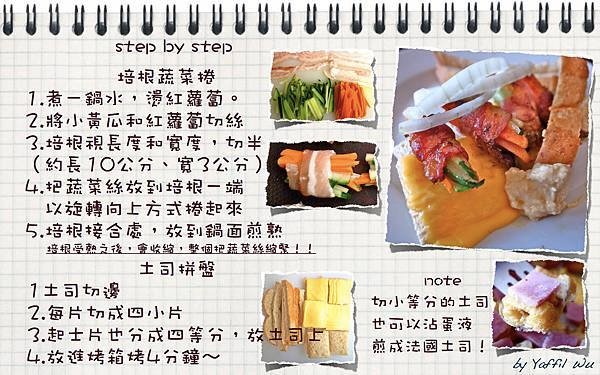 step by step
培根蔬菜捲
1.煮一鍋水，燙紅蘿蔔。
2.將小黃瓜和紅蘿蔔切絲
3.培根視長度和寬度，切半
（約長10公分、寬3公分）
4.把蔬菜絲放到培根一端
以旋轉向上方式捲起來
5.培根接合處，放到鍋面煎熟
培根受熱之後，會收縮，整個把蔬菜絲縮緊！！
土司拼盤
1土司切邊
2.每片切成四小片
3.起士片也分成四等分，放土司上
4.放進烤箱烤4分鐘～
note
切小等分的土司
也可以沾蛋液
煎成法國土司！
by Yaffil Wu